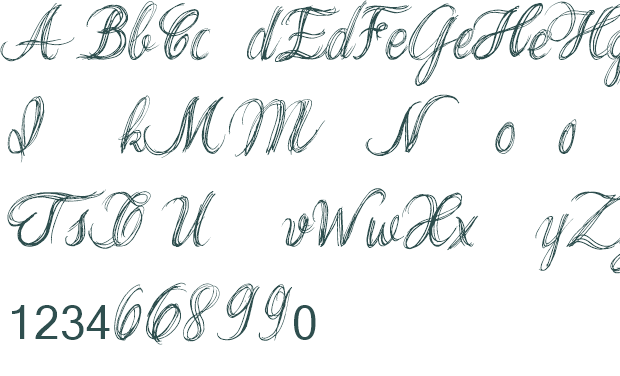 A BbCc dEdFeGeHeHg
I kMM N o o
TsT U vWwXx yZy
1234668990